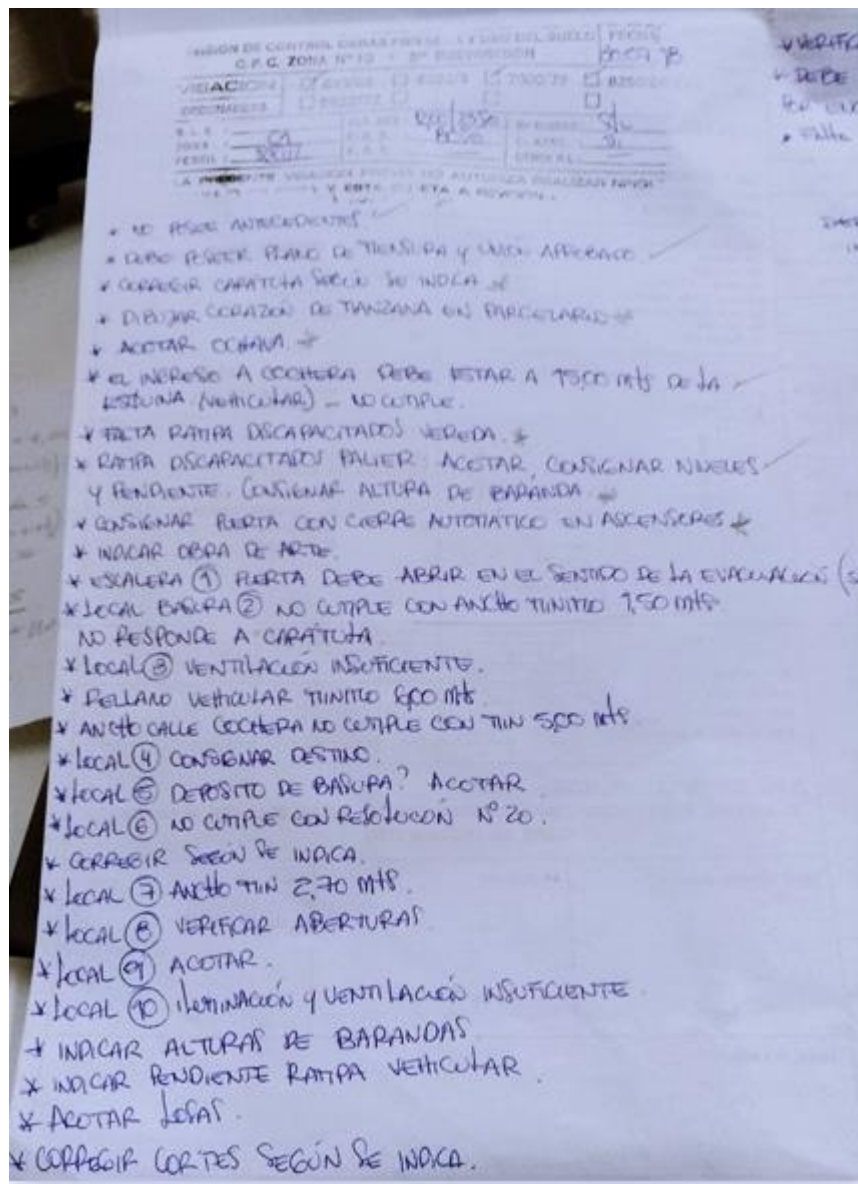 DIVISIÓN DE CONTROL OBRAS PRIVADAS Y USO DEL SUELO FECHA
C.P.C. ZONA
VISACIÓN
ORDENANZAS
ZONA C1
PERFIL
* NO POSEE ANTECEDENTES
* DEBE POSEER PLANO DE MENSURA Y UNIÓN APROBADO
* CORREGIR CARÁTULA SEGÚN SE INDICA
* DIBUJAR CORAZÓN DE MANZANA EN PARCELARIO
* ACOTAR OCHAVA
* EL INGRESO A COCHERA DEBE ESTAR A 15,00 mts DE LA
ESQUINA (VEHICULAR) - NO CUMPLE.
* FALTA RAMPA DISCAPACITADOS VEREDA.
* RAMPA DISCAPACITADOS PALIER: ACOTAR, CONSIGNAR NIVELES
Y PENDIENTE. CONSIGNAR ALTURA DE BARANDA
* CONSIGNAR PUERTA CON CIERRE AUTOMÁTICO EN ASCENSORES
* INDICAR OBRA DE ARTE.
* ESCALERA ① PUERTA DEBE ABRIR EN EL SENTIDO DE LA EVACUACIÓN (
* LOCAL BASURA ② NO CUMPLE CON ANCHO MINIMO 1,50 mts
NO RESPONDE A CARÁTULA.
* LOCAL ③ VENTILACIÓN INSUFICIENTE.
* RELLANO VEHICULAR MINIMO 6,00 mts
* ANCHO CALLE COCHERA NO CUMPLE CON MIN 5,00 mts
* LOCAL ④ CONSIGNAR DESTINO.
* LOCAL ⑤ DEPOSITO DE BASURA? ACOTAR
* LOCAL ⑥ NO CUMPLE CON RESOLUCIÓN Nº 20.
* CORREGIR SEGÚN SE INDICA.
* LOCAL ⑦ ANCHO MIN 2,70 mts.
* LOCAL ⑧ VERIFICAR ABERTURAS
* LOCAL ⑨ ACOTAR.
* LOCAL ⑩ ILUMINACIÓN Y VENTILACIÓN INSUFICIENTE
* INDICAR ALTURAS DE BARANDAS
* INDICAR PENDIENTE RAMPA VEHICULAR.
* ACOTAR LOSAS.
* CORREGIR CORTES SEGÚN SE INDICA.
* DEBE
* FALTA